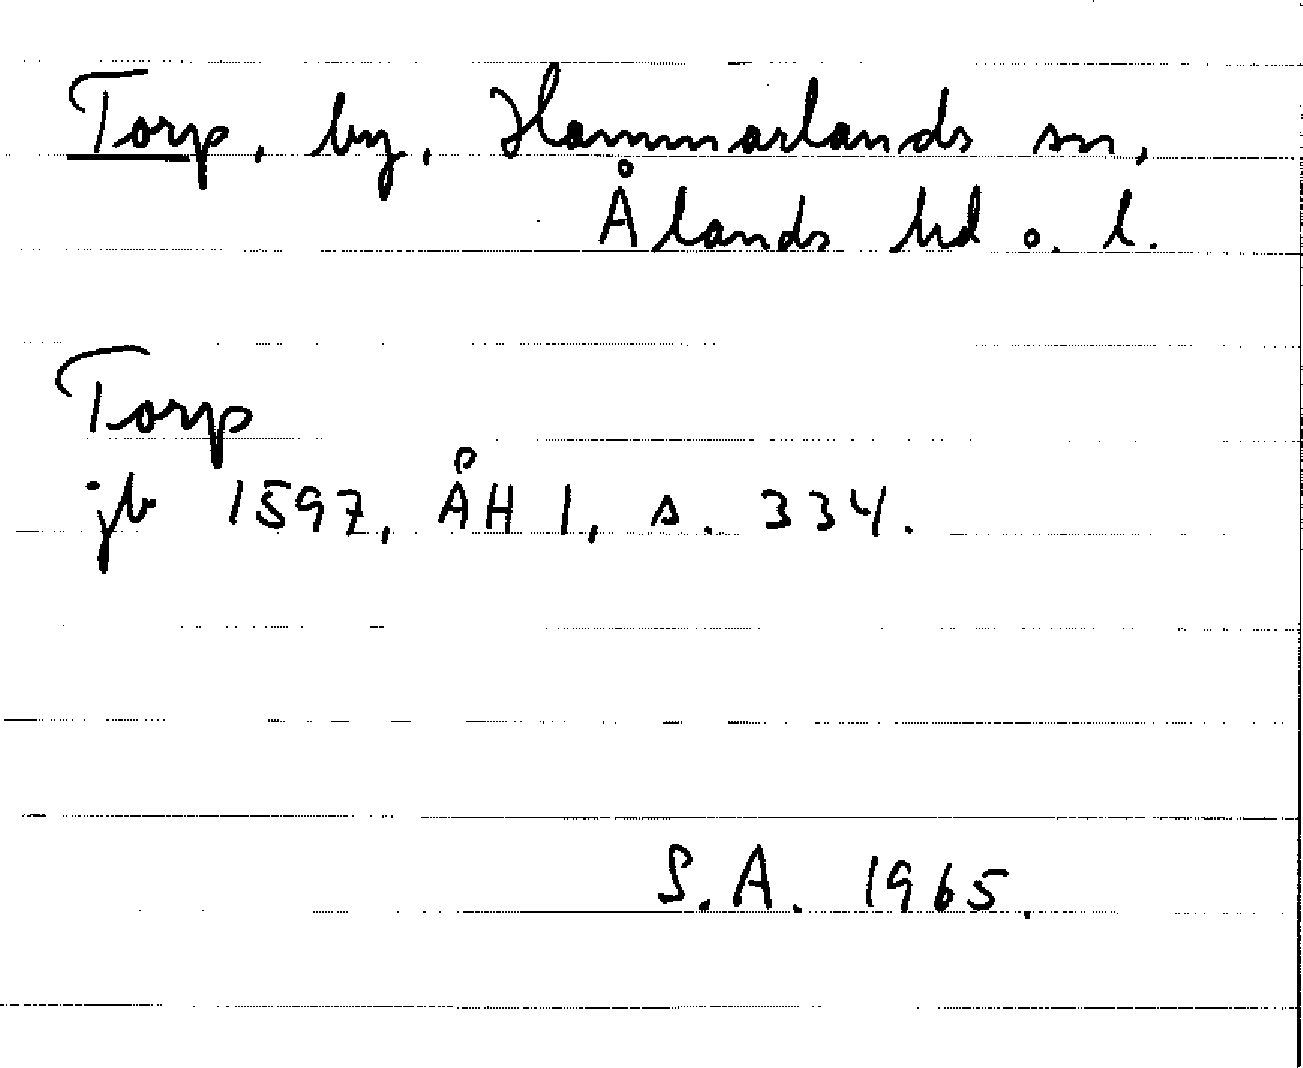 Torp, by, Hammarlands sn,
Ålands hd o. l.
Torp
jb 1597, ÅH 1, s. 334.
S.A. 1965.